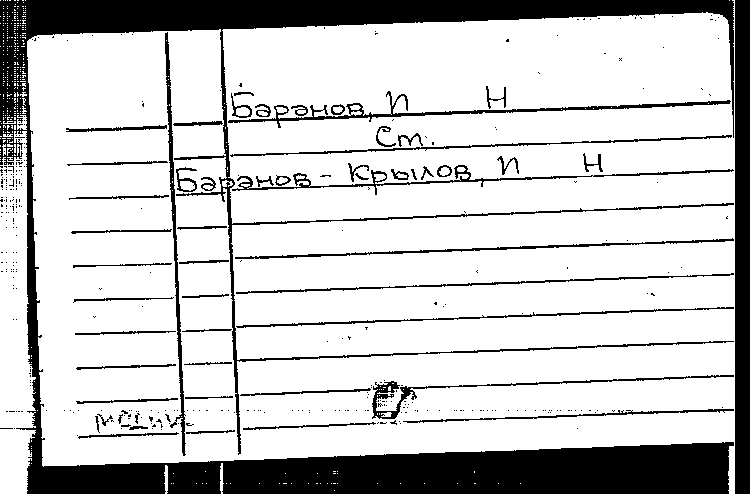 Баранов, П Н
Ст.
Баранов - Крылов, П Н